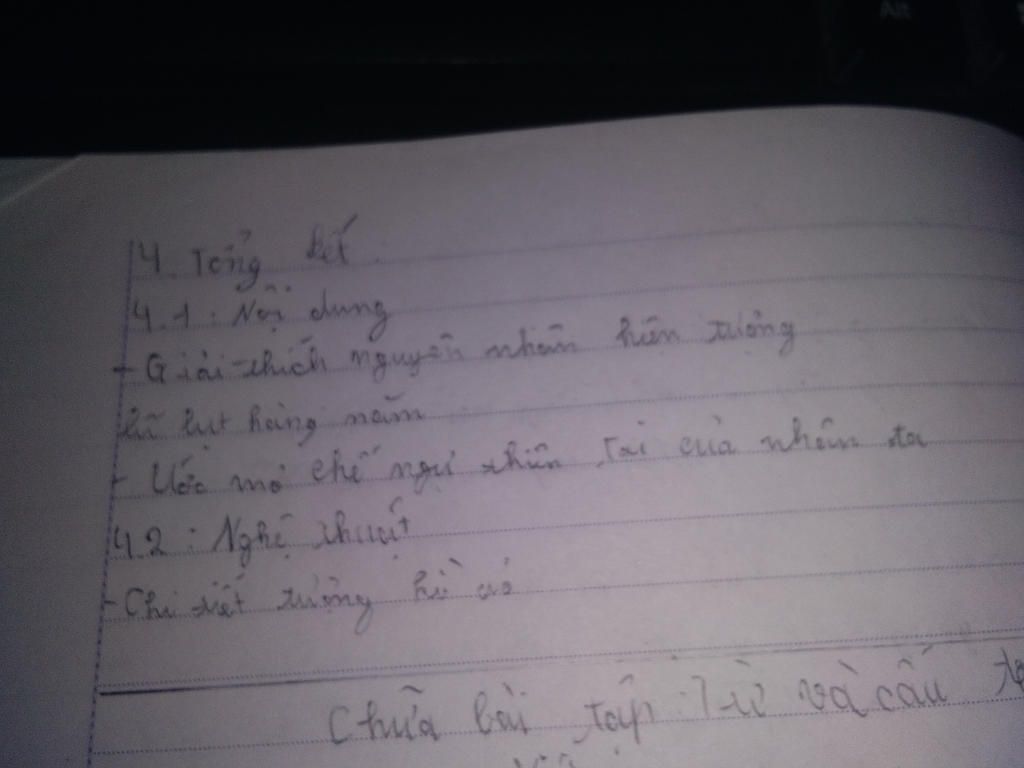 4. Tổng kết
4.1: Nội dung
- Giải thích nguyên nhân hiện tượng
lũ lụt hàng năm
- Ước mơ chế ngự thiên tai của nhân ta
4.2: Nghệ thuật
- Chi tiết tưởng kì ảo
Chữa bài tập: Từ và cấu
Alt